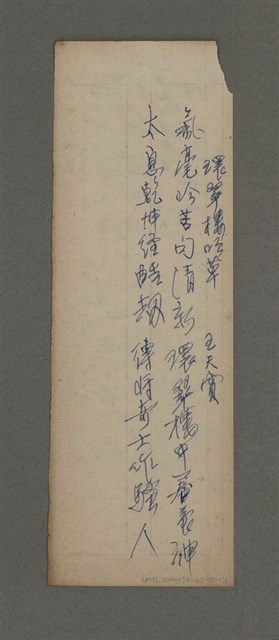 環翠樓吟草 王天賞
氣毫吟苦句清新 環翠樓中養我神
太息乾坤經酷劫 傳將奇士作騷人